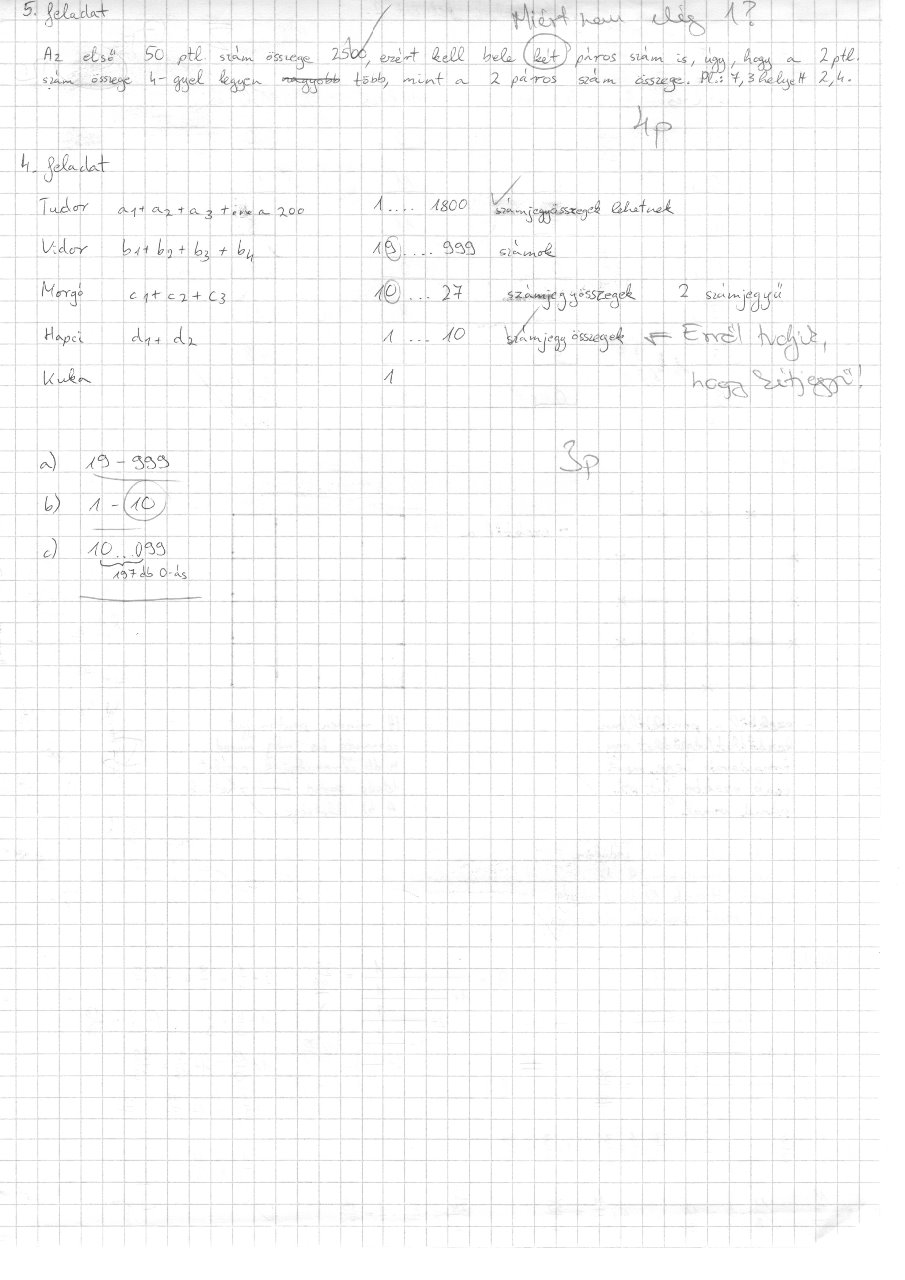 5. feladat
Miért nem elég 1?
Az első 50 ptl szám összege 2500, ezért kell bele két páros szám is, úgy, hogy a 2 ptl.
szám összege 4-gyel legyen nagyobb több, mint a 2 páros szám összege. Pl.: 7,3 helyett 2,4.
4p
4. feladat
Tudor a1+a2+a3+ a 200 1.... 1800 számjegyösszegek lehetnek
Vidor b1+b2+b3+b4 19.... 999 számok
Morgó c1+c2+c3 10 ... 27 számjegyösszegek 2 számjegyű
Hapci d1+d2 1 ... 10 számjegyösszegek ← Erről tudjuk,
Kuka 1 hogy kétjegyű!
3p
a) 19-999
b) 1-10
c) 10...099
197 db 0-ás